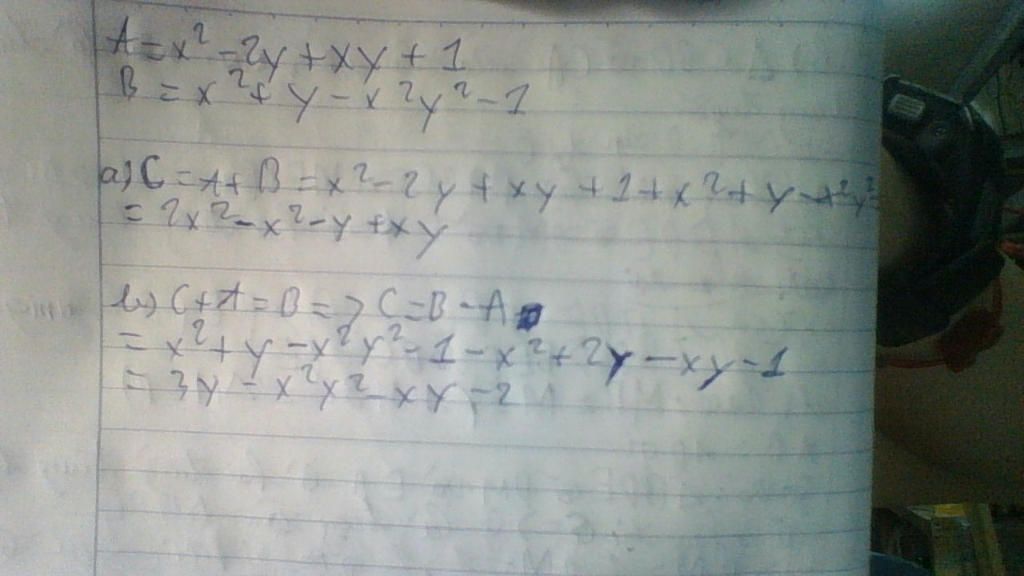 A = x² - 2y + xy + 1
B = x² + y - x²y² - 1
a) C = A + B = x² - 2y + xy + 1 + x² + y - x²y²
= 2x² - x² - y + xy
b) C + A = B => C = B - A
= x² + y - x²y² - 1 - x² + 2y - xy - 1
= 3y - x²y² - xy - 2